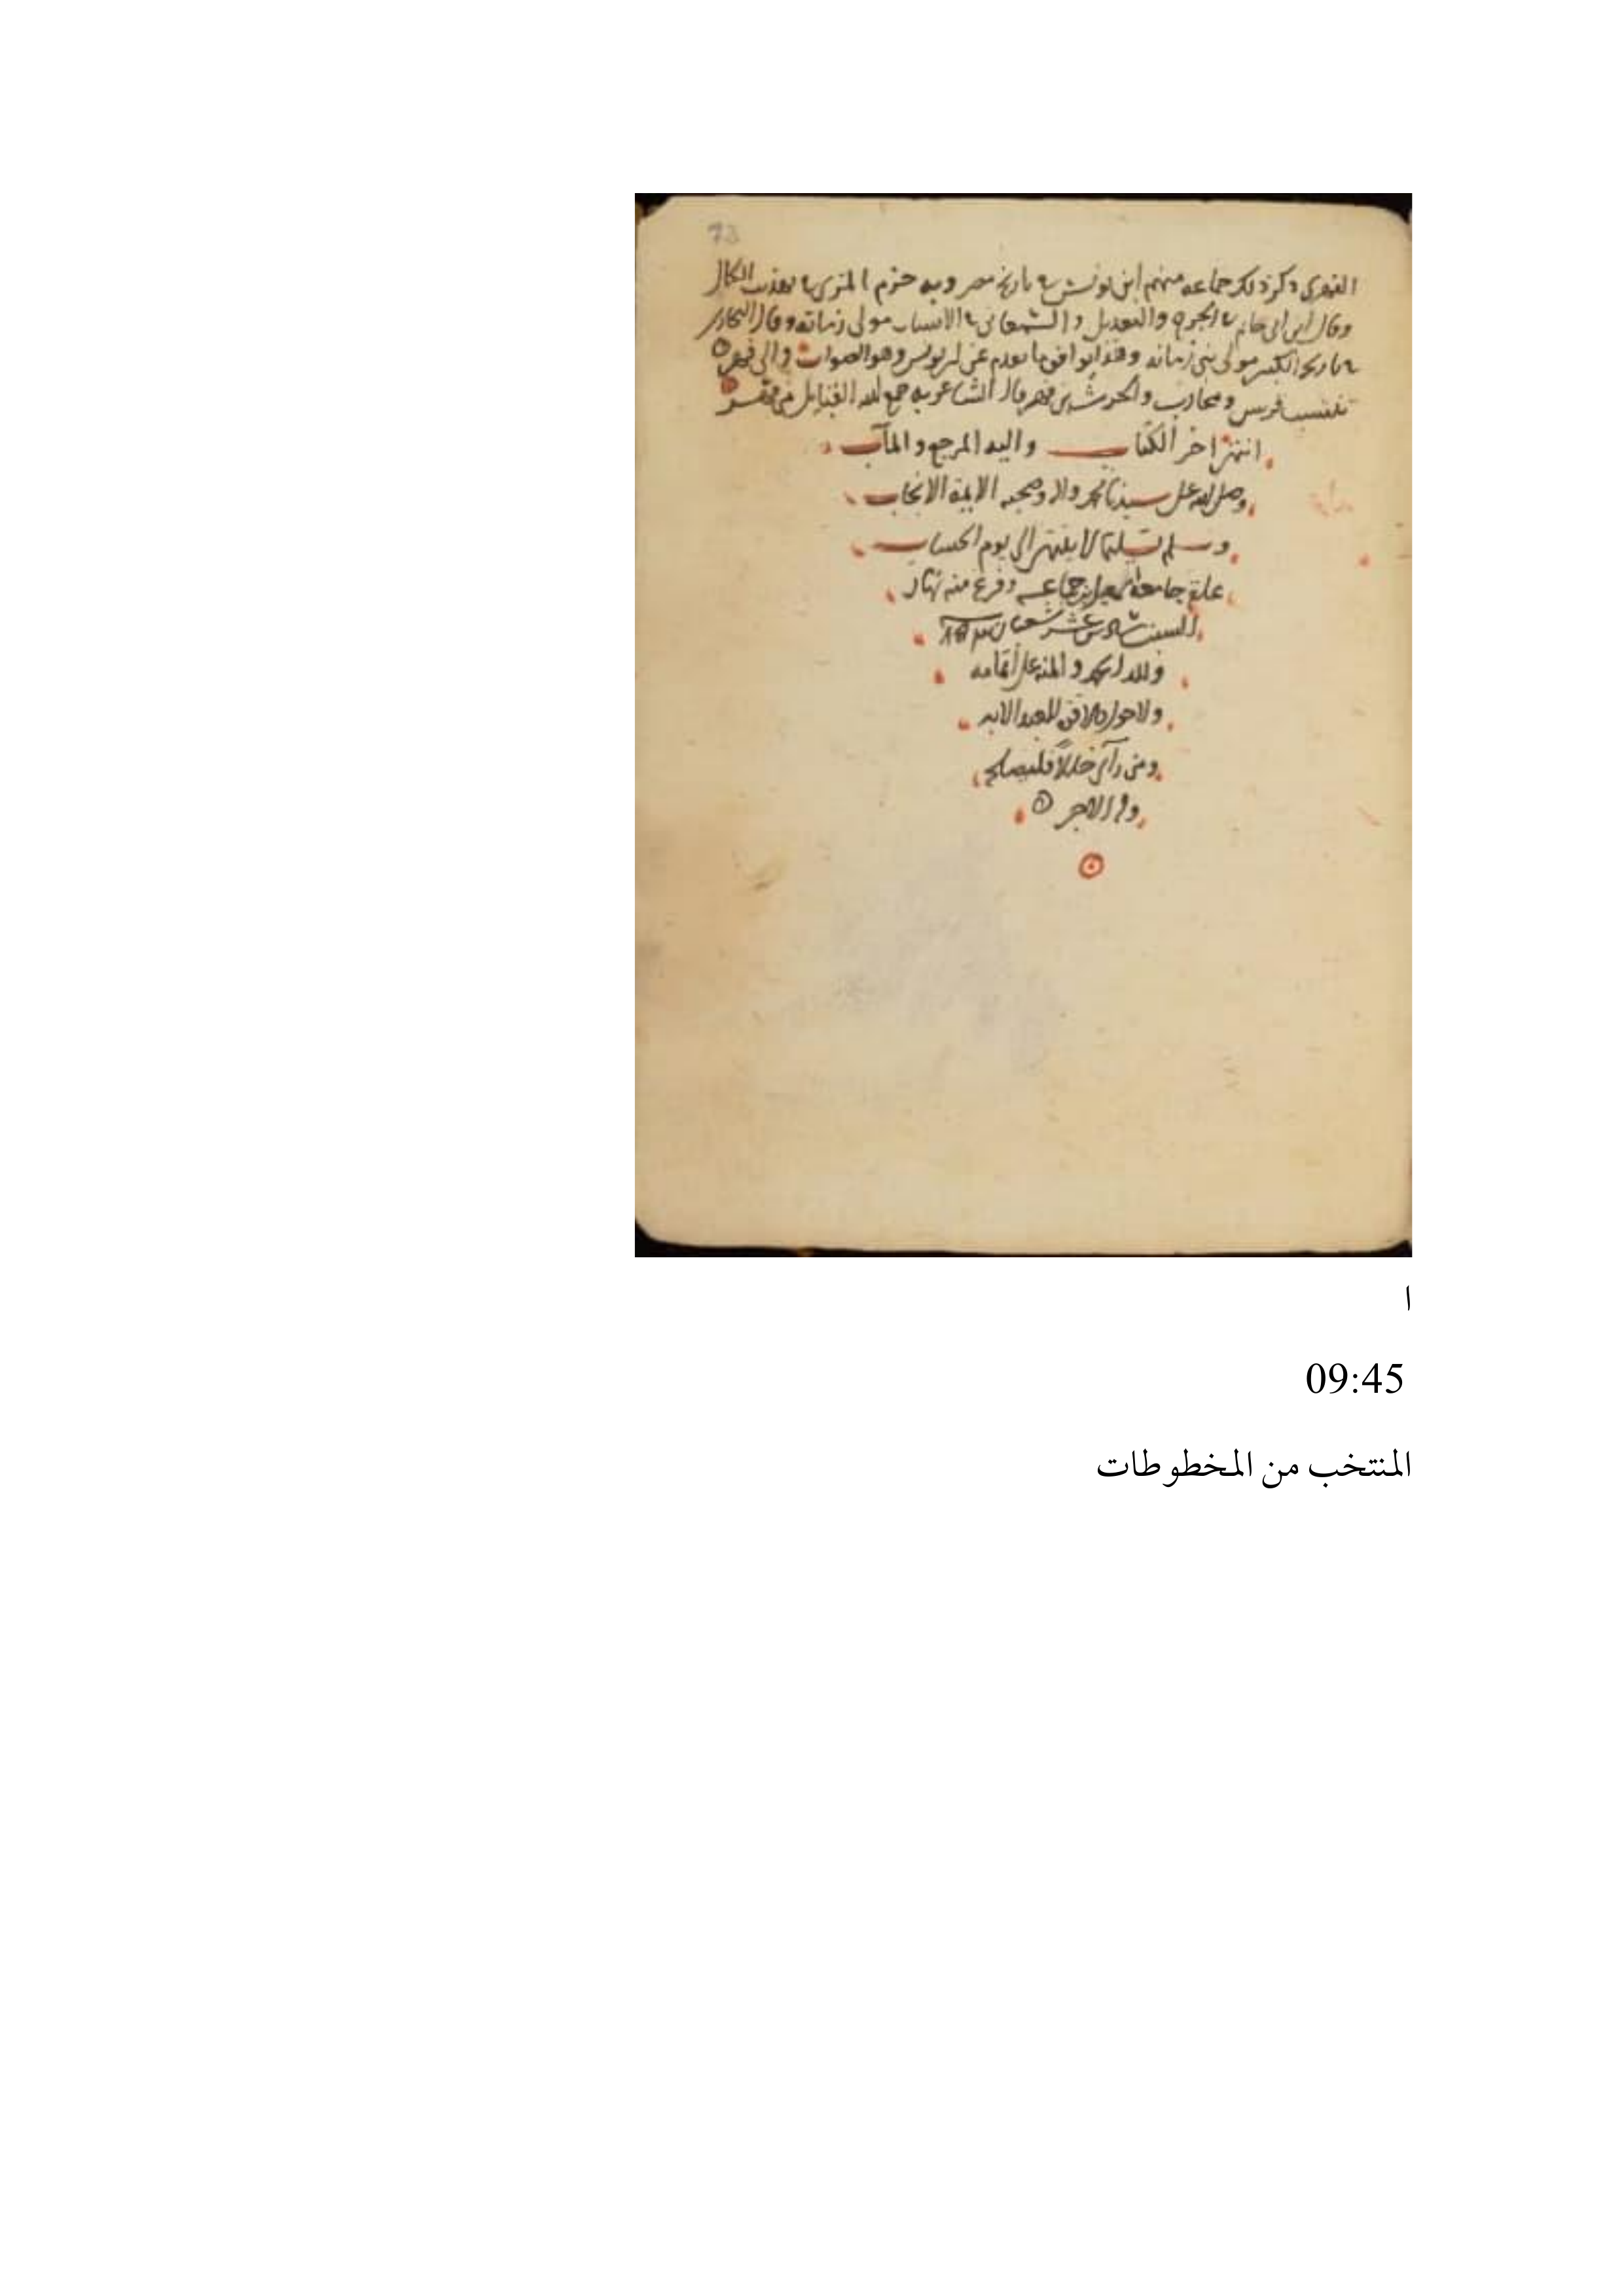 73
الفهري ذكر ذلك جماعه منهم ابن يونس في تاريخ مصر وبه جزم المزي في تهذيب الكمال
وقال ابن ابي حاتم في الجرح والتعديل والسمعاني في الانساب مولى زمانه وقال البخاري
في تاريخه الكبير مولى بني زمانه وهذا يوافق ما تقدم عن ابن يونس وهو الصواب والى فهر
تنتسب قريش ومحارب والحرث بن فهر قال الشاعر به جمع الله القبايل من فهر
انتهى اخر الكتاب واليه المرجع والمآب
وصلى الله على سيدنا محمد واله وصحبه الايمة الانجاب
وسلم تسليما لا ينتهي الى يوم الحساب
علقه جامعه ابن جماعه وفرغ منه نهار
السبت سادس عشر شعبان
ولله الحمد والمنه على اتمامه
ولا حول ولا قوة للعبد الا به
ومن رآى خللاً فليصلحه
وله الاجر
ا
09:45
المنتخب من المخطوطات